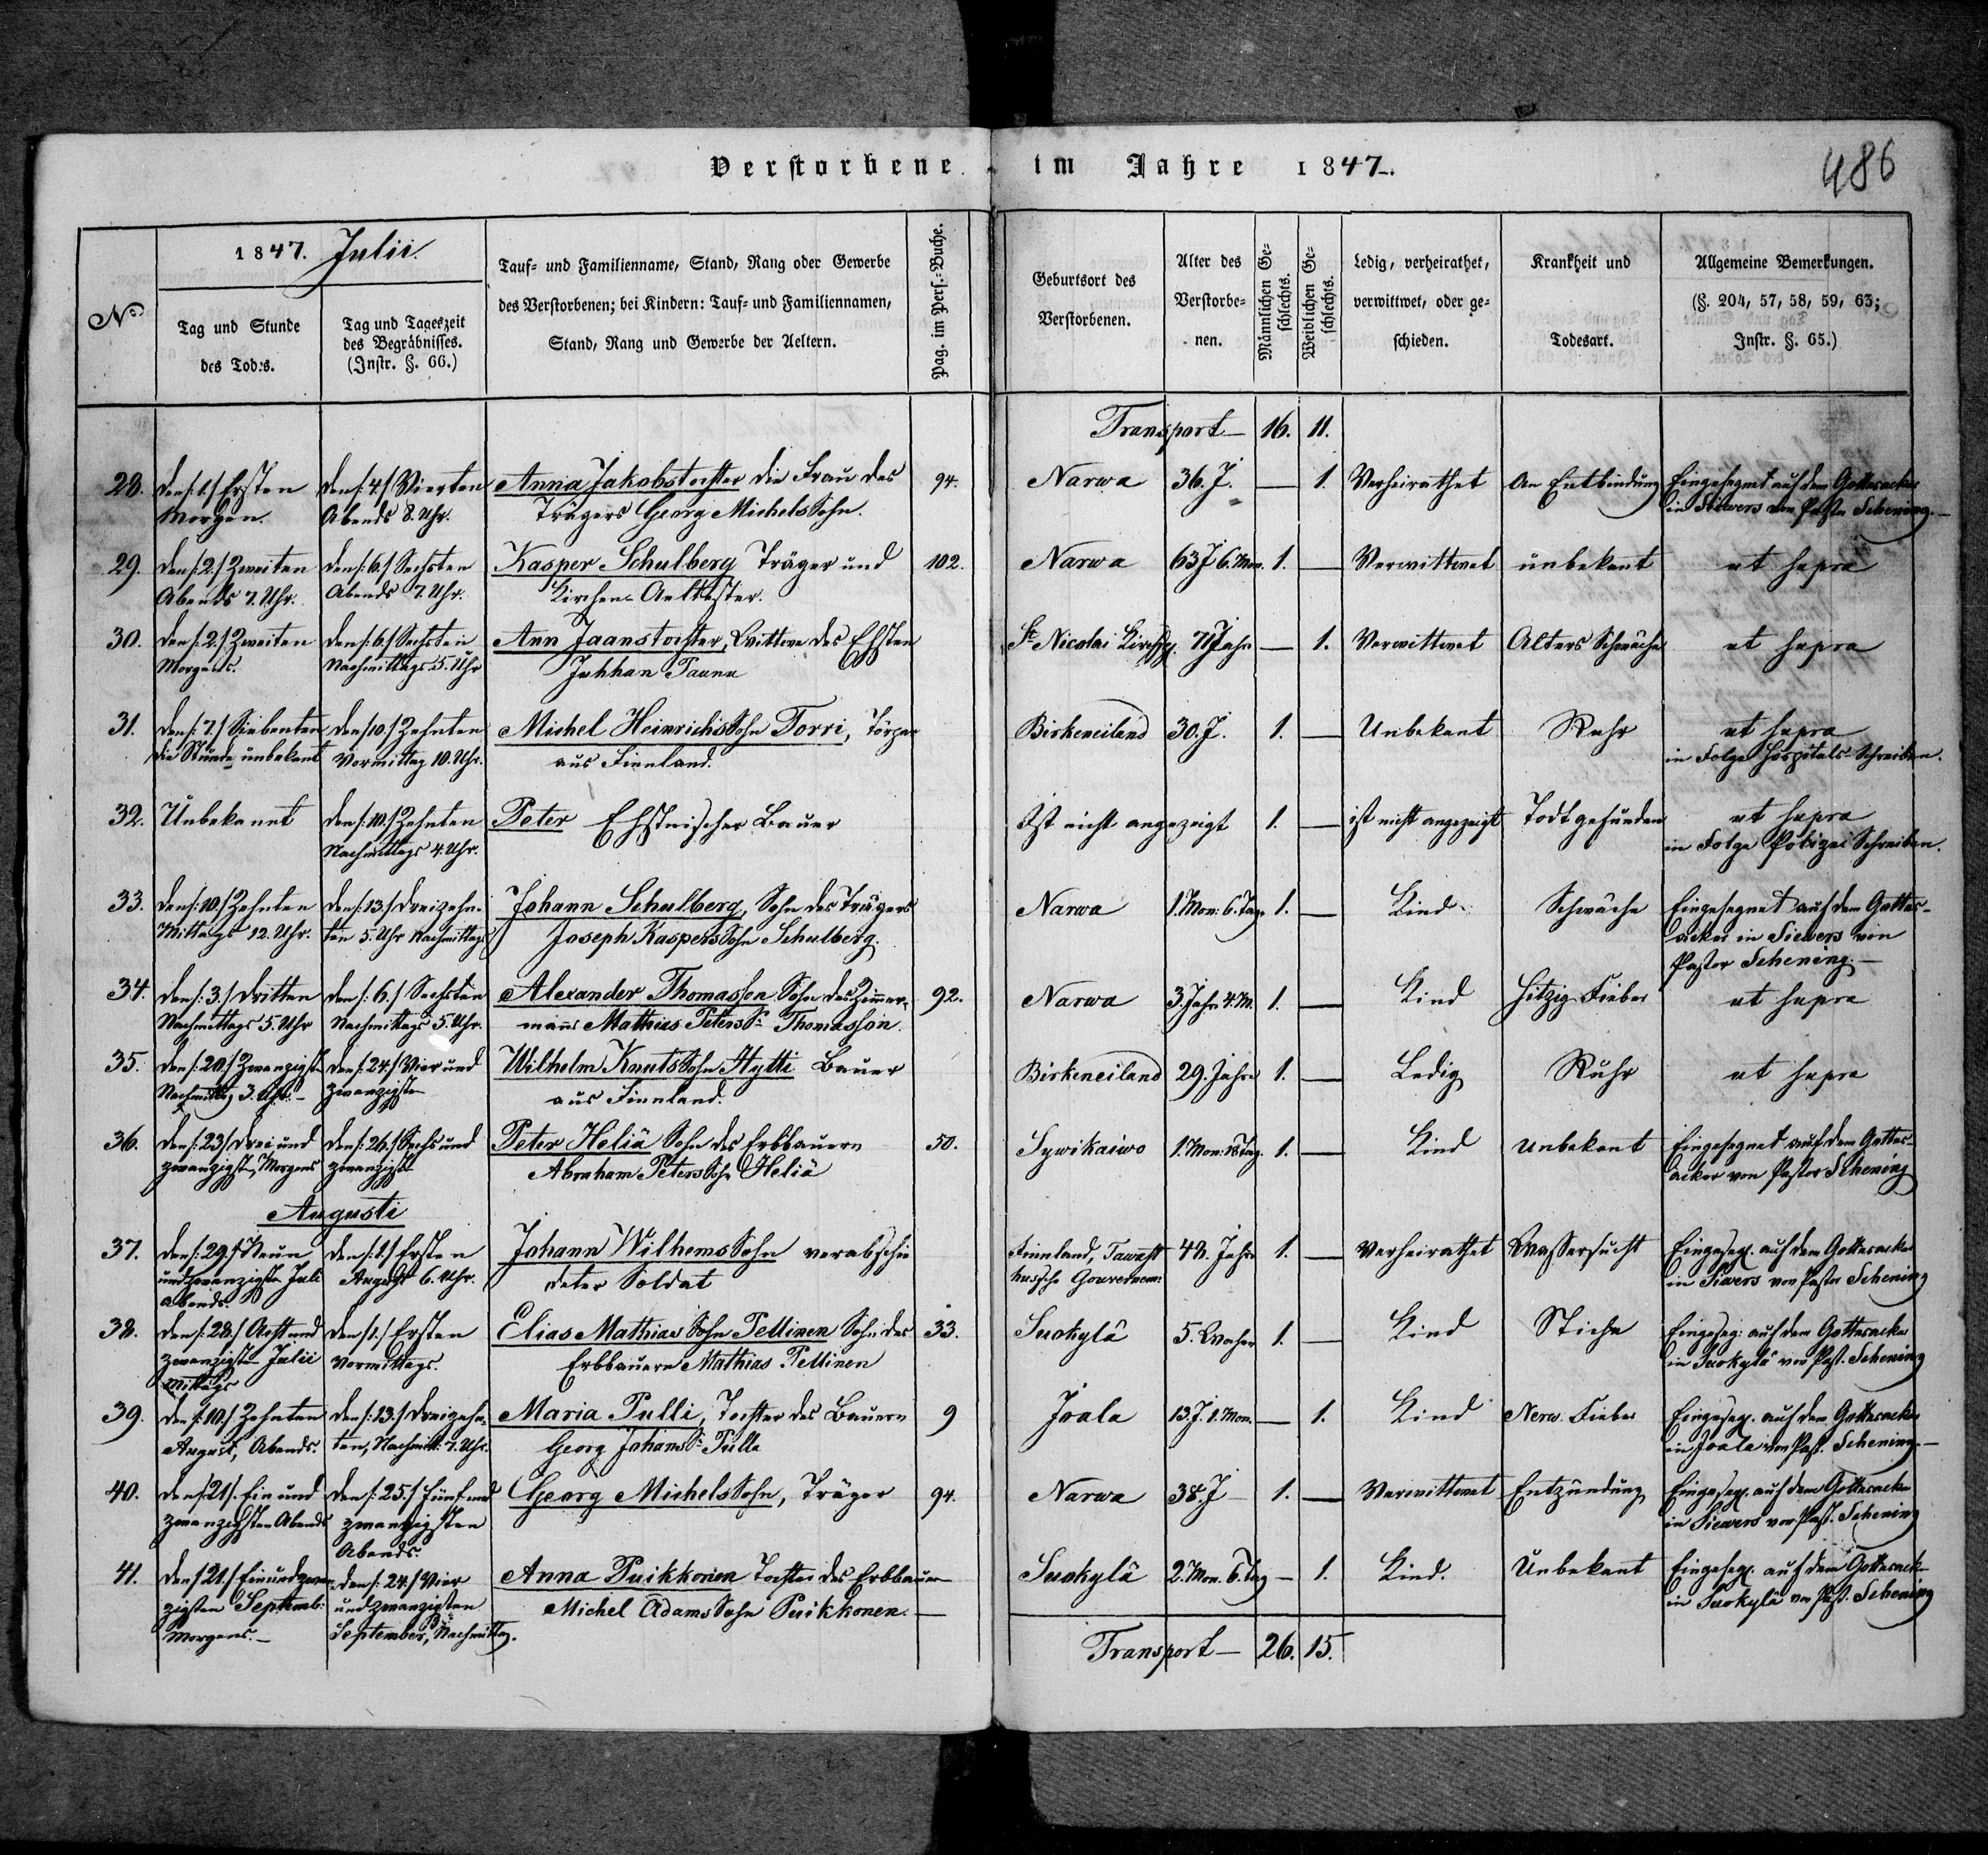 Verstorbene im Jahre 1847.
486
No
1847. Julii
Tag und Stunde des Todes.
Tag und Tageszeit des Begräbnisses. (Instr. §. 66.)
Tauf- und Familienname, Stand, Rang oder Gewerbe
des Verstorbenen; bei Kindern: Tauf- und Familiennamen,
Stand, Rang und Gewerbe der Aeltern.
Pag. im Pers.-Buche.
Geburtsort des Verstorbenen.
Alter des Verstorbenen.
Männlichen Geschlechts.
Weiblichen Geschlechts.
Ledig, verheirathet, verwittwet, oder geschieden.
Krankheit und Todesart.
Allgemeine Bemerkungen.
(§. 204, 57, 58, 59, 63; Instr. §. 65.)
Transport 16. 11.
28. den /:1./ Ersten den /:4./ Vierten Anna Jakobstochter die Frau des 94. Narwa 36. J. — 1. Verheirathet An Entbindung Eingesegnet auf dem Gottesacker
Morgen. Abends 8. Uhr. Trägers Georg Michels Sohn. in Siewers von Pastor Schening.
29. den /:2./ Zweiten den /:6./ Sechsten Kasper Schulberg Träger und 102. Narwa 63 J 6. Mon. 1. — Verwittwet unbekant ut supra
Abends 7. Uhr. Abends 7. Uhr. Kirchen-Aeltester.
30. den /:2./ Zweiten den /:6./ Sechsten Ann Jaanstochter, Wittwe des Ehsten St Nicolai Kirchsp. 71 Jahr — 1. Verwittwet Alters Schwäche ut supra
Morgens. Nachmittags 5. Uhr Juhhan Taunu
31. den /:7./ Siebenten den /:10./ Zehnten Michel Heinrichs Sohn Torri, aus Finnland. Birkeneiland 30. J. 1. — Unbekant Ruhr ut supra
die Stunde unbekant Vormittag 10. Uhr. in Folge Hospitals-Schreiben.
32. Unbekannt den /:10./ Zehnten Peter Ehstnischer Bauer Ist nicht angezeigt 1. — ist nicht angezeigt Todt gefunden ut supra
Nachmittags 4. Uhr. in Folge Polizei Schreiben.
33. den /:10./ Zehnten den /:13./ Dreizehn- Johann Schulberg, Sohn des Trägers Narwa 1. Mon: 6. Tage 1. — Kind Schwäche Eingesegnet auf dem Gottes-
Mittags 12. Uhr. ten 5. Uhr Nachmittags Joseph Kaspers Sohn Schulberg. acker in Siewers von
Pastor Schening.
34. den /:3./ Dritten den /:6./ Sechsten Alexander Thomasson Sohn des Zimmer- 92. Narwa 3. Jahr 4. M. 1. — Kind Hitzig Fieber ut supra
Nachmittags 5. Uhr Nachmittags 5. Uhr. manns Mathias Peters S: Thomasson.
35. den /:20./ Zwanzigst. den /:24./ Vier und Wilhelm Knuts Sohn Hytti Bauer Birkeneiland 29. Jahre 1. — Ledig Ruhr ut supra
Nachmittag 3. Uhr. zwanzigsten aus Finnland.
36. den /:23/ Drei und den /:26./ Sechs und Peter Heliä Sohn des Erbbauern 50. Sywikaiwo 1. Mon: 1. — Kind Unbekant Eingesegnet auf dem Gottes-
zwanzigsten, Morgens zwanzigsten Abraham Peters Sohn Heliä acker von Pastor Schening
Augusti
37. den /:29./ Neun den /:1./ Ersten Johann Wilhems Sohn verabschie Finnland, Tawast 48. Jahre 1. — Verheirathet Wassersucht Eingeseg. auf dem Gottesacker
und zwanzigsten Juli August 6. Uhr. deter Soldat hussche Gouvernem: in Siewers von Pastor Schening
abends.
38. den /:28./ Acht und den /:1./ Ersten Elias Mathias Sohn Pellinen Sohn des 33. Suokylä 5. Wochen 1. — Kind Stiche Eingeseg: auf dem Gottesacker
zwanzigsten Julii Vormittags. Erbbauern Mathias Pellinen in Suokylä von Past. Schening
Mittags
39. den /:10./ Zehnten den /:13./ Dreizehn- Maria Pulli, Tochter des Bauern 9 Joala 13. J. 1. Mon. — 1. Kind Nerv. Fieber Eingeseg. auf dem Gottesacker
August, Abends. ten, Nachmitt: 7. Uhr. Georg Johans S: Pulli in Joala von Past. Schening.
40. den /:21/. Ein und den /:25./ Fünf und Georg Michels Sohn, Träger 94. Narwa 38. J 1. — Verwittwet Entzündung Eingeseg. auf dem Gottesacker
zwanzigsten Abends zwanzigsten in Siewers von Past. Schening
Abends.
41. den /:21./ Ein und zwan- den /:24./ Vier Anna Puikkonen Tochter des Erbbauern Suokylä 2. Mon. 6. Tag — 1. Kind. Unbekant Eingeseg. auf dem Gottesack-
zigsten Septemb: und zwanzigsten Michel Adams Sohn Puikkonen. in Suokylä von Past. Schening
Morgens. September, Nachmittag.
Transport 26. 15.